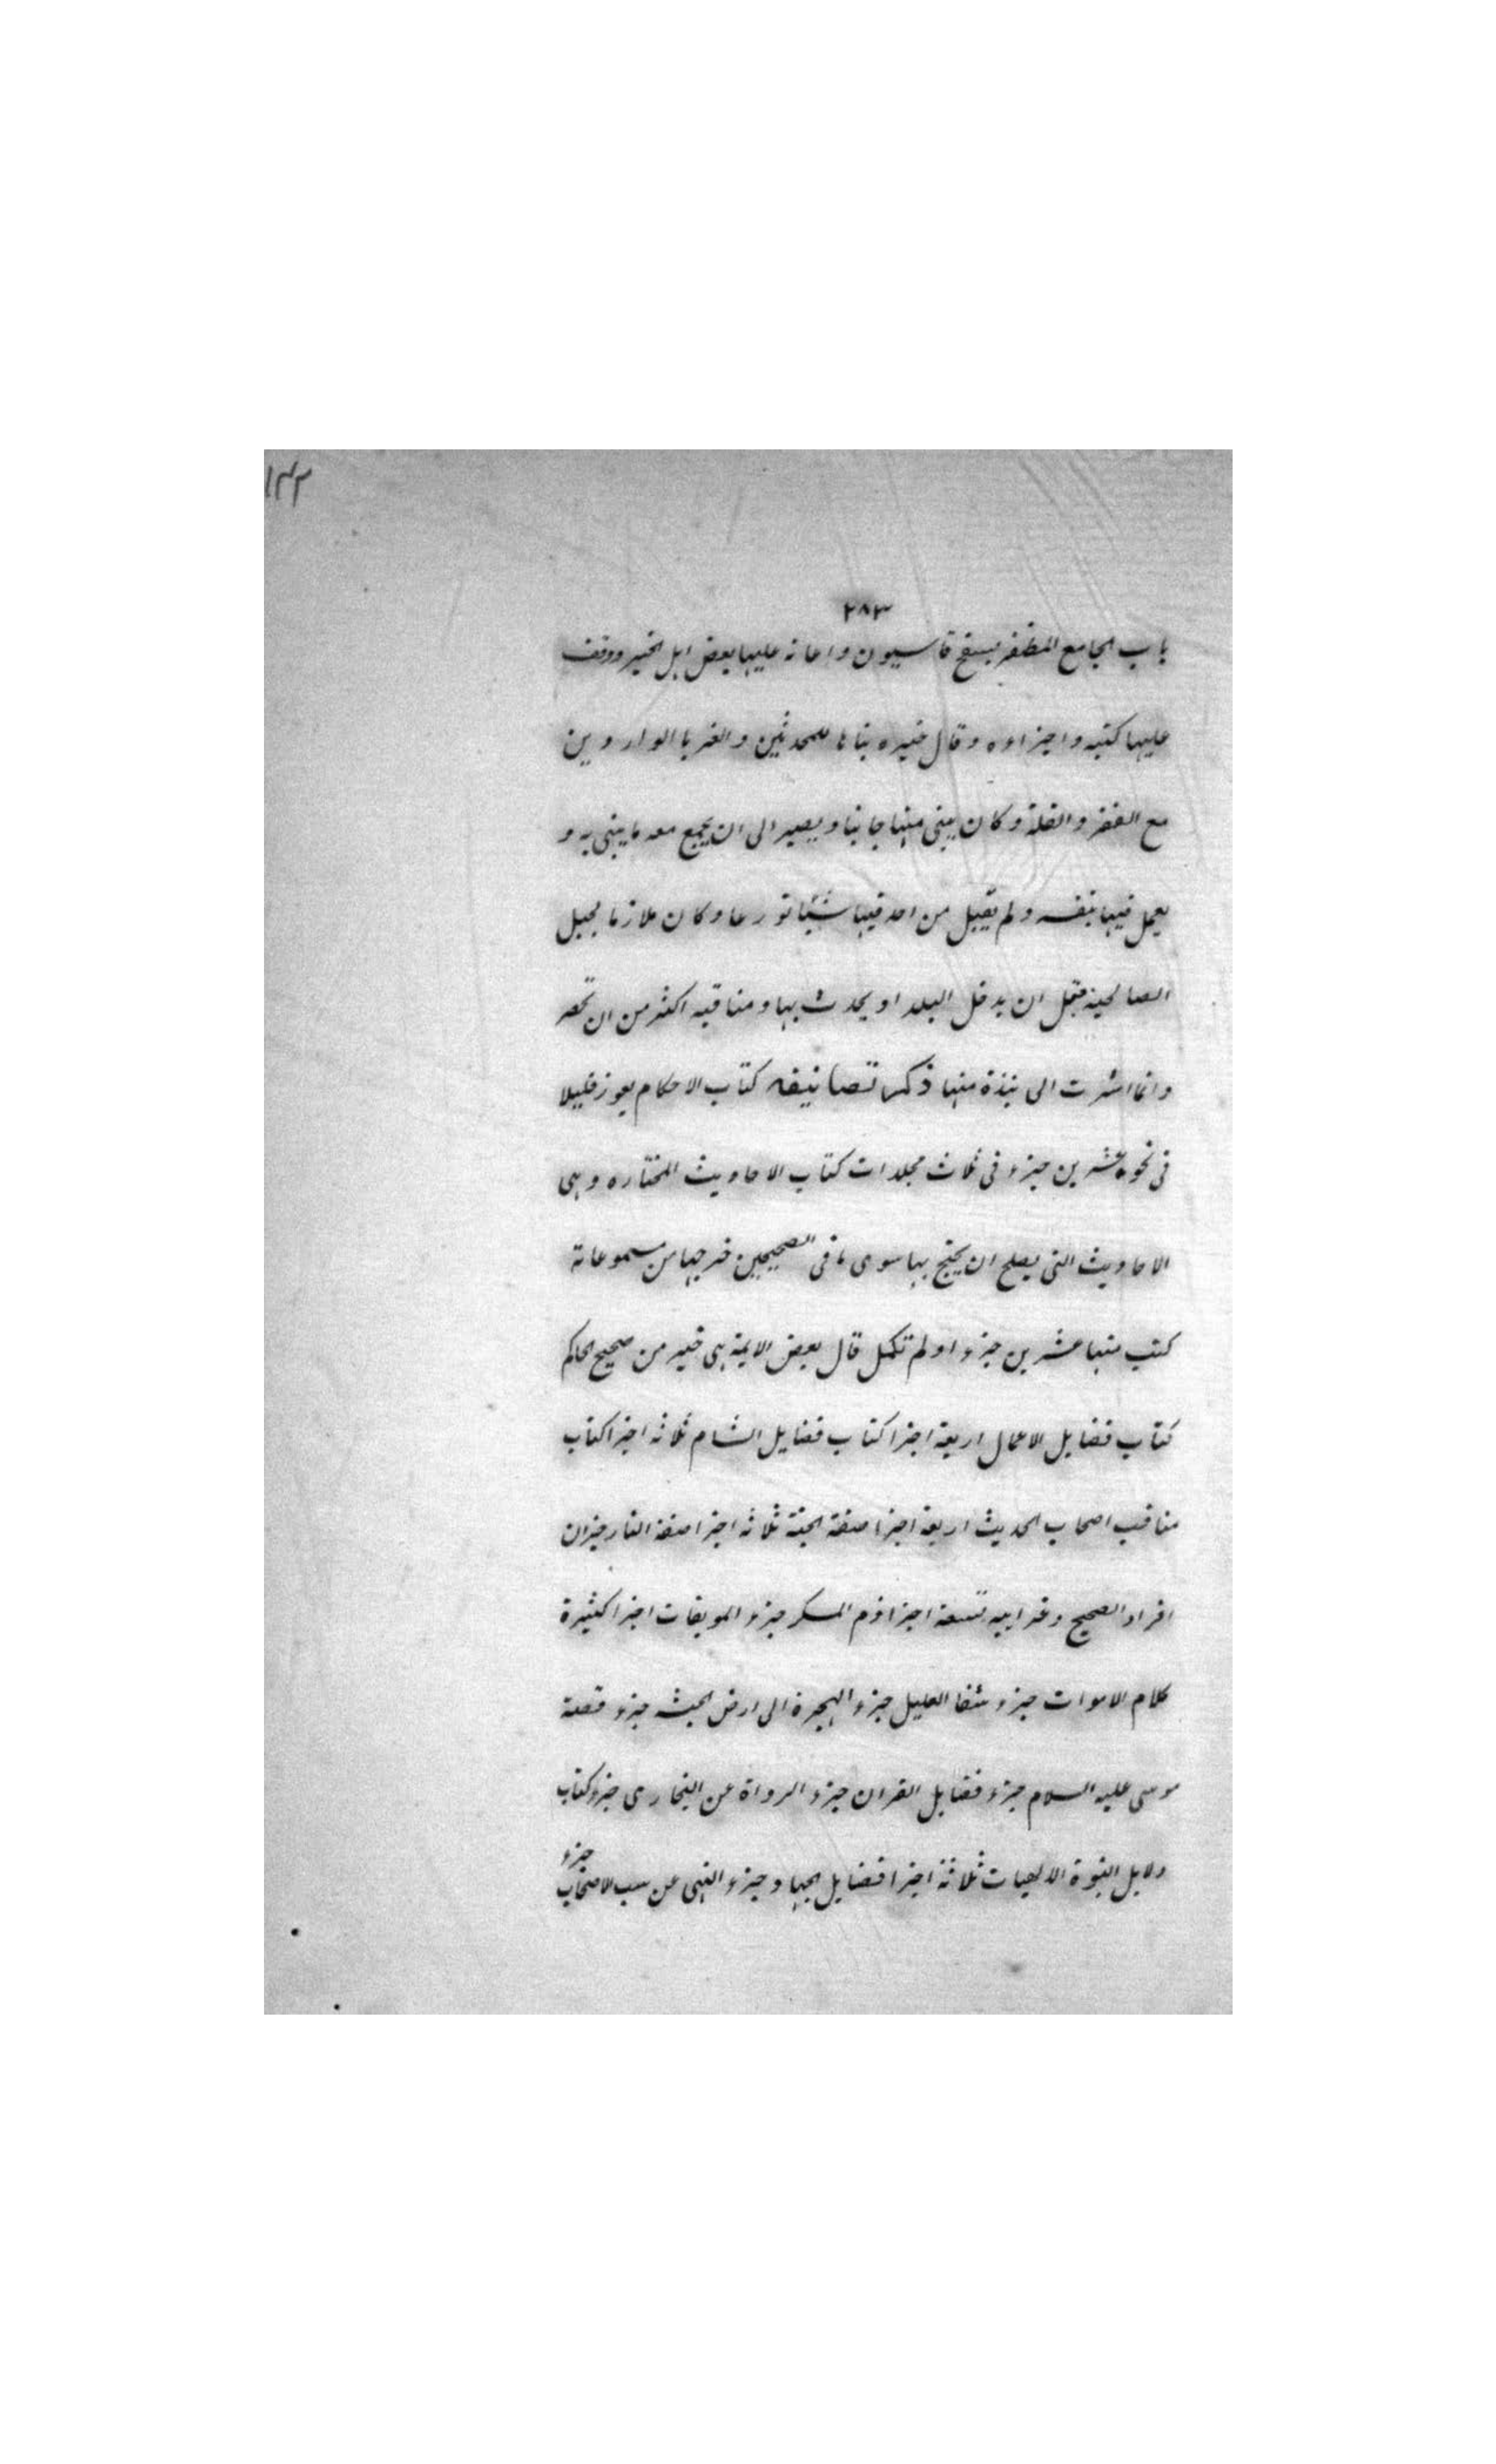 ۱۴۲
۲۸۳
باب الجامع المظفر بسفح قاسيون واعانه عليها بعض اهل الخير ووقف
عليها كتبه واجزاوه وقال غيره بناها للمحدثين والغربا الواردين
مع الفقر والقلة وكان يبنى منها جانبا ويصير الى ان يجمع معه ما يبنى به و
يعمل فيها بنفسه ولم يقبل من احد فيها شيئا تورعا وكان ملازما لجبل
الصالحية قبل ان يدخل البلد او يحدث بها ومناقبه اكثر من ان تحصر
وانما اشرت الى نبذة منها ذكر تصانيفه كتاب الاحكام يعوز قليلا
فى نحو عشرين جزء فى ثلاث مجلدات كتاب الاحاديث المختاره وهى
الاحاديث التى يصلح ان يحتج بها سوى ما فى الصحيحين خرجها من مسموعاته
كتب منها عشرين جزء اولم تكمل قال بعض الايمة هى خير من صحيح الحاكم
كتاب فضايل الاعمال اربعة اجزا كتاب فضايل الشام ثلاثه اجزا كتاب
مناقب اصحاب الحديث اربعة اجزا صفة الجنة ثلاثه اجزا صفة النار جزان
افراد الصحيح وغرايبه تسعة اجزا ذم المسكر جزء الموبقات اجزا كثيرة
كلام الاموات جزء شفا العليل جزء الهجرة الى ارض الحبشه جزء قصة
موسى عليه السلام جزء فضايل القران جزء الرواة عن البخارى جزء كتاب
دلايل النبوة الالهيات ثلاثة اجزا فضايل الجهاد جزء النهى عن سب الاصحاب جزء